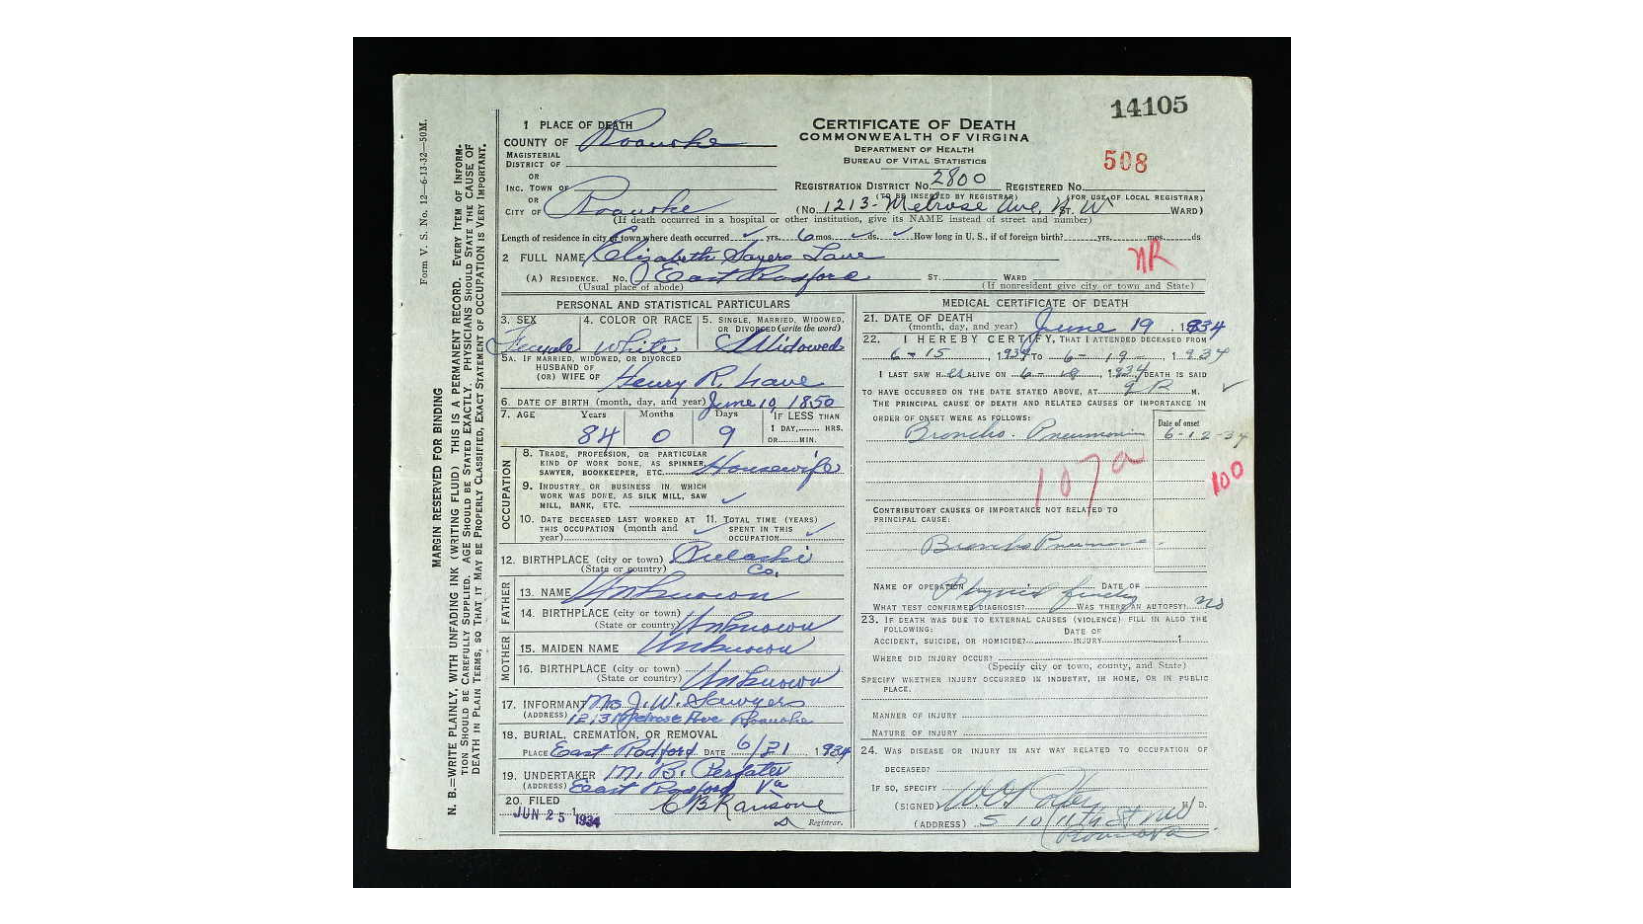 14105
CERTIFICATE OF DEATH
COMMONWEALTH OF VIRGINIA
DEPARTMENT OF HEALTH
BUREAU OF VITAL STATISTICS
508
1 PLACE OF DEATH
COUNTY OF Roanoke
MAGISTERIAL
DISTRICT OF
OR
INC. TOWN OF
OR
CITY OF Roanoke
REGISTRATION DISTRICT NO. 2800 REGISTERED NO.
(TO BE INSERTED BY REGISTRAR) (FOR USE OF LOCAL REGISTRAR)
(No. 1213- Melrose Ave, N. W ST. WARD)
(If death occurred in a hospital or other institution, give its NAME instead of street and number)
Length of residence in city or town where death occurred yrs. 6 mos. ds. How long in U. S., if of foreign birth? yrs. mos. ds
2 FULL NAME Elizabeth Sayers Lane
NR
(A) RESIDENCE. No. East Radford ST. WARD
(Usual place of abode) (If nonresident give city or town and State)
PERSONAL AND STATISTICAL PARTICULARS
3. SEX 4. COLOR OR RACE 5. SINGLE, MARRIED, WIDOWED,
OR DIVORCED (write the word)
Female White Widowed
5A. IF MARRIED, WIDOWED, OR DIVORCED
HUSBAND OF
(OR) WIFE OF Henry R. Lane
6. DATE OF BIRTH (month, day, and year) June 10, 1850
7. AGE Years Months Days IF LESS THAN
1 DAY, HRS.
OR MIN.
84 0 9
OCCUPATION
8. TRADE, PROFESSION, OR PARTICULAR
KIND OF WORK DONE, AS SPINNER,
SAWYER, BOOKKEEPER, ETC. Housewife
9. INDUSTRY OR BUSINESS IN WHICH
WORK WAS DONE, AS SILK MILL, SAW
MILL, BANK, ETC.
10. DATE DECEASED LAST WORKED AT 11. TOTAL TIME (YEARS)
THIS OCCUPATION (month and SPENT IN THIS
year) OCCUPATION
12. BIRTHPLACE (city or town) Pulaski
(State or country) Co.
FATHER
13. NAME Unknown
14. BIRTHPLACE (city or town)
(State or country) Unknown
MOTHER
15. MAIDEN NAME Unknown
16. BIRTHPLACE (city or town)
(State or country) Unknown
17. INFORMANT Mrs J. W. Sawyers
(ADDRESS) 1213 Melrose Ave Roanoke
18. BURIAL, CREMATION, OR REMOVAL
PLACE East Radford DATE 6/21, 1934
19. UNDERTAKER M. B.
(ADDRESS) East Radford Va
20. FILED CB Ransone
JUN 25 1934 Registrar.
MEDICAL CERTIFICATE OF DEATH
21. DATE OF DEATH
(month, day, and year) June 19, 1934
22. I HEREBY CERTIFY, THAT I ATTENDED DECEASED FROM
6-15, 1934 TO 6-19-, 1934
I LAST SAW HER ALIVE ON 6-19, 1934, DEATH IS SAID
TO HAVE OCCURRED ON THE DATE STATED ABOVE, AT 9 P. M.
THE PRINCIPAL CAUSE OF DEATH AND RELATED CAUSES OF IMPORTANCE IN
ORDER OF ONSET WERE AS FOLLOWS:
Date of onset
Broncho-Pneumonia 6-12-34
107a
100
CONTRIBUTORY CAUSES OF IMPORTANCE NOT RELATED TO
PRINCIPAL CAUSE:
Broncho Pneumonia
NAME OF OPERATION DATE OF
WHAT TEST CONFIRMED DIAGNOSIS? WAS THERE AN AUTOPSY? no
23. IF DEATH WAS DUE TO EXTERNAL CAUSES (VIOLENCE) FILL IN ALSO THE
FOLLOWING: DATE OF
ACCIDENT, SUICIDE, OR HOMICIDE? INJURY 1
WHERE DID INJURY OCCUR?
(Specify city or town, county, and State)
SPECIFY WHETHER INJURY OCCURRED IN INDUSTRY, IN HOME, OR IN PUBLIC
PLACE.
MANNER OF INJURY
NATURE OF INJURY
24. WAS DISEASE OR INJURY IN ANY WAY RELATED TO OCCUPATION OF
DECEASED?
IF SO, SPECIFY
(SIGNED) M. D.
(ADDRESS) 510 11th St NW
Roanoke Va
Form V. S. No. 12—6-13-32—50M.
MARGIN RESERVED FOR BINDING
N. B.—WRITE PLAINLY, WITH UNFADING INK (WRITING FLUID) THIS IS A PERMANENT RECORD. EVERY ITEM OF INFORM-
TION SHOULD BE CAREFULLY SUPPLIED. AGE SHOULD BE STATED EXACTLY. PHYSICIANS SHOULD STATE THE CAUSE OF
DEATH IN PLAIN TERMS, SO THAT IT MAY BE PROPERLY CLASSIFIED. EXACT STATEMENT OF OCCUPATION IS VERY IMPORTANT.